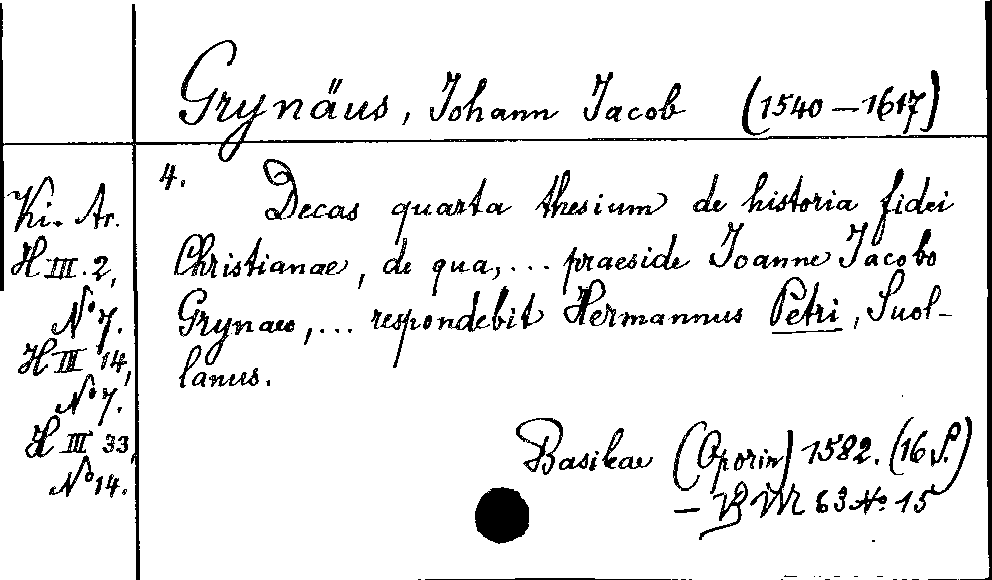 Grynäus, Johann Jacob (1540—1617)
4.
Decas quarta thesium de historia fidei
Christianae, de qua,... praeside Joanne Jacobo
Grynaeo,... respondebit Hermannus Petri, Suol-
lanus.
Basileae (Oporin) 1582. (16 S.)
— BM 63 No. 15
Ki. Ar.
H III. 2,
No 7.
H III 14,
No 7.
H III 33,
No 14.